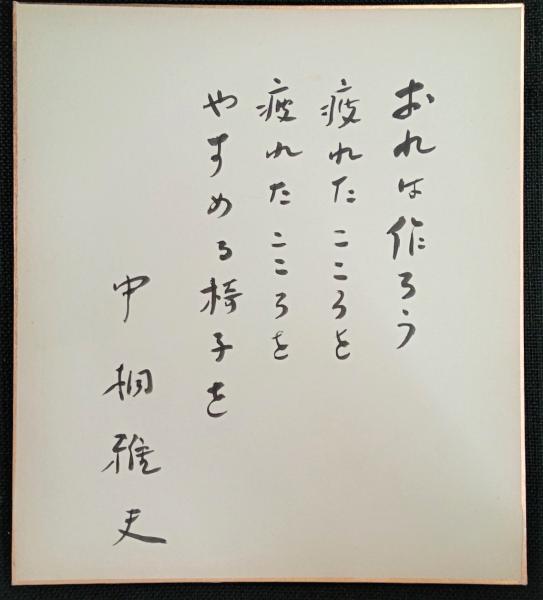 おれは作ろう
疲れたこころを
疲れたこころを
やすめる椅子を
中桐雅夫